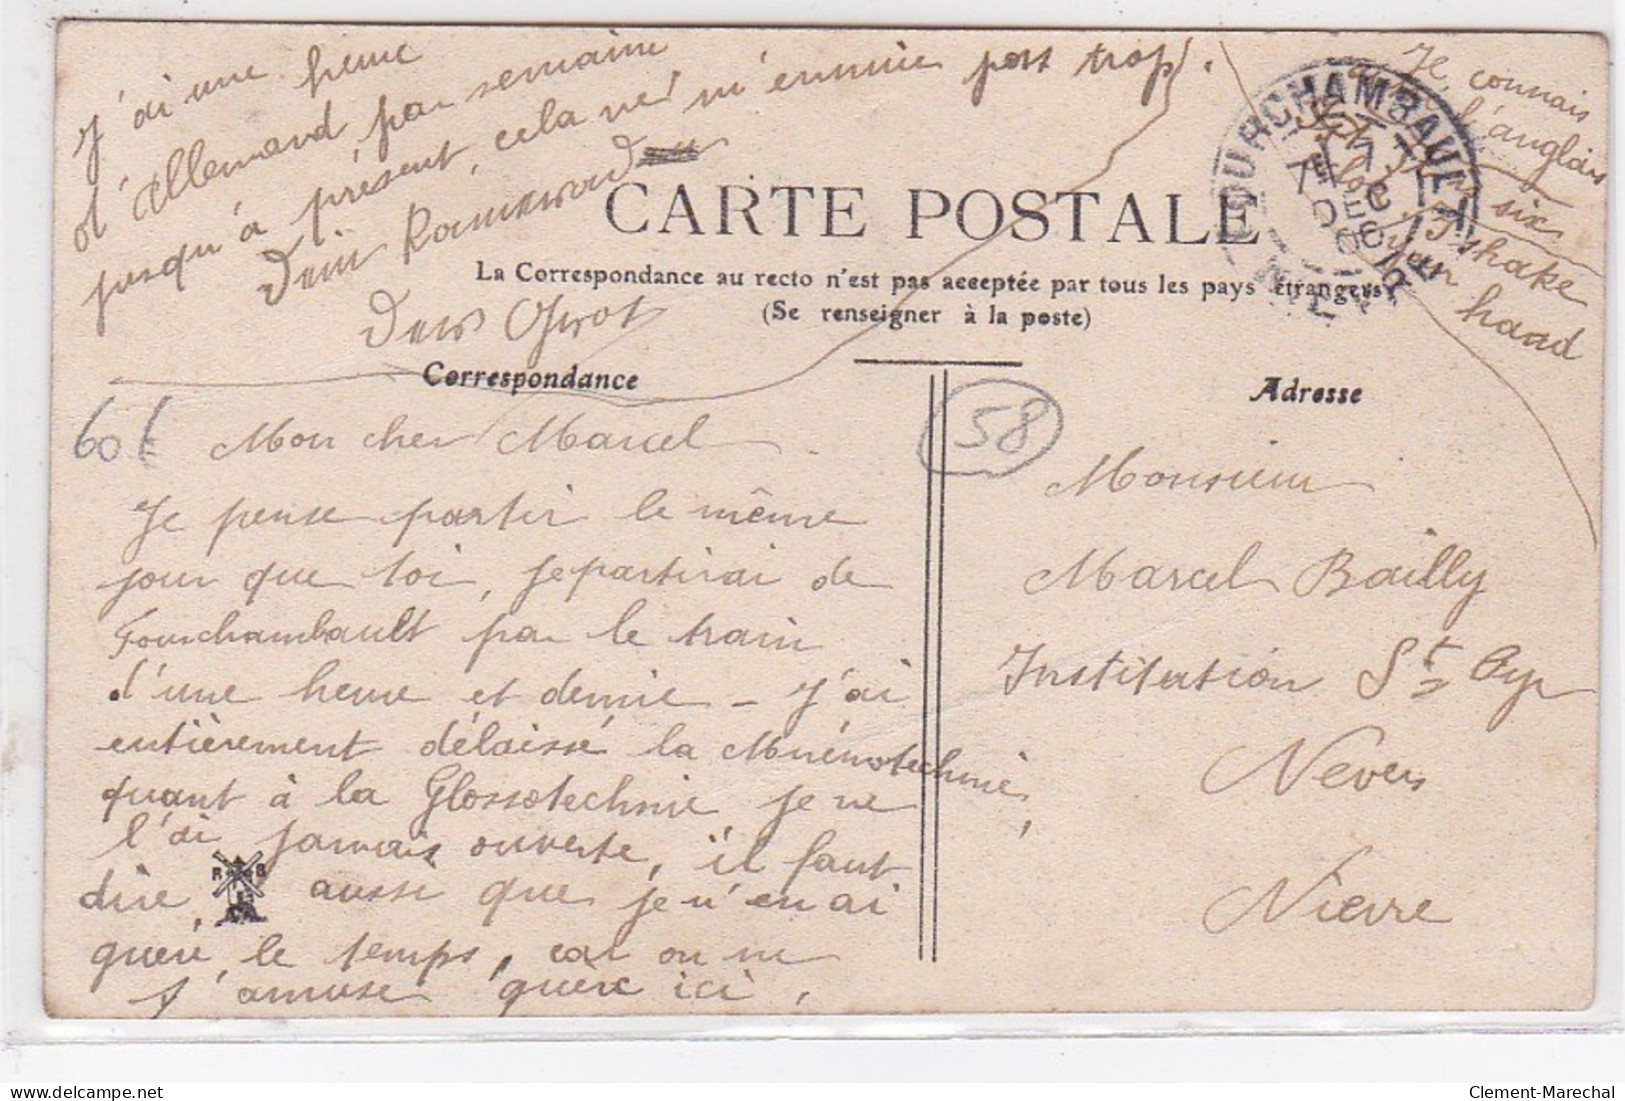 CARTE POSTALE
La Correspondance au recto n'est pas acceptée par tous les pays étrangers
(Se renseigner à la poste)
Correspondance
Adresse
60f
58
Mon cher Marcel
Je pense partir le même
jour que toi, je partirai de
Fourchambault par le train
d'une heure et demie - J'ai
entièrement délaissé la Mnémotechnie,
quant à la Glossotechnie je ne
l'ai jamais ouverte, il faut
dire aussi que je n'en ai
guère le temps, car on ne
s'amuse guère ici,
J'ai une heure
d'Allemand par semaine
jusqu'à présent, cela ne m'ennuie pas trop.
Dein
Dein
Je connais
l'anglais
six
I shake
your hand
Monsieur
Marcel Bailly
Institution St Cyr
Nevers
Nièvre
FOURCHAMBAULT
NIEVRE
R B
Clement-Marechal